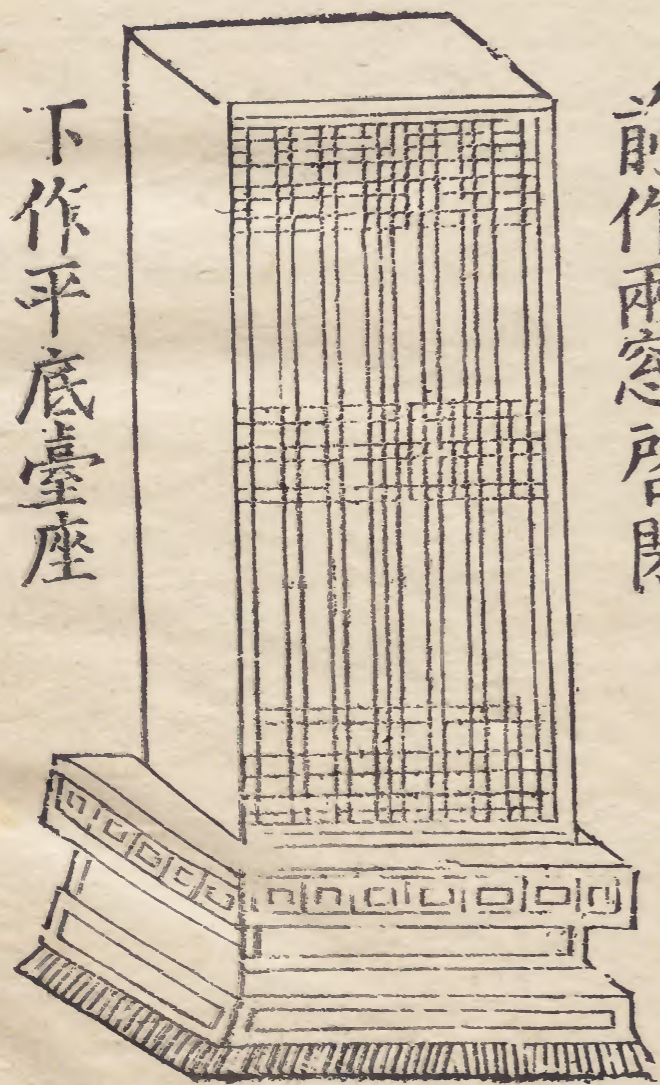 前作兩窓啓閉
下作平底臺座